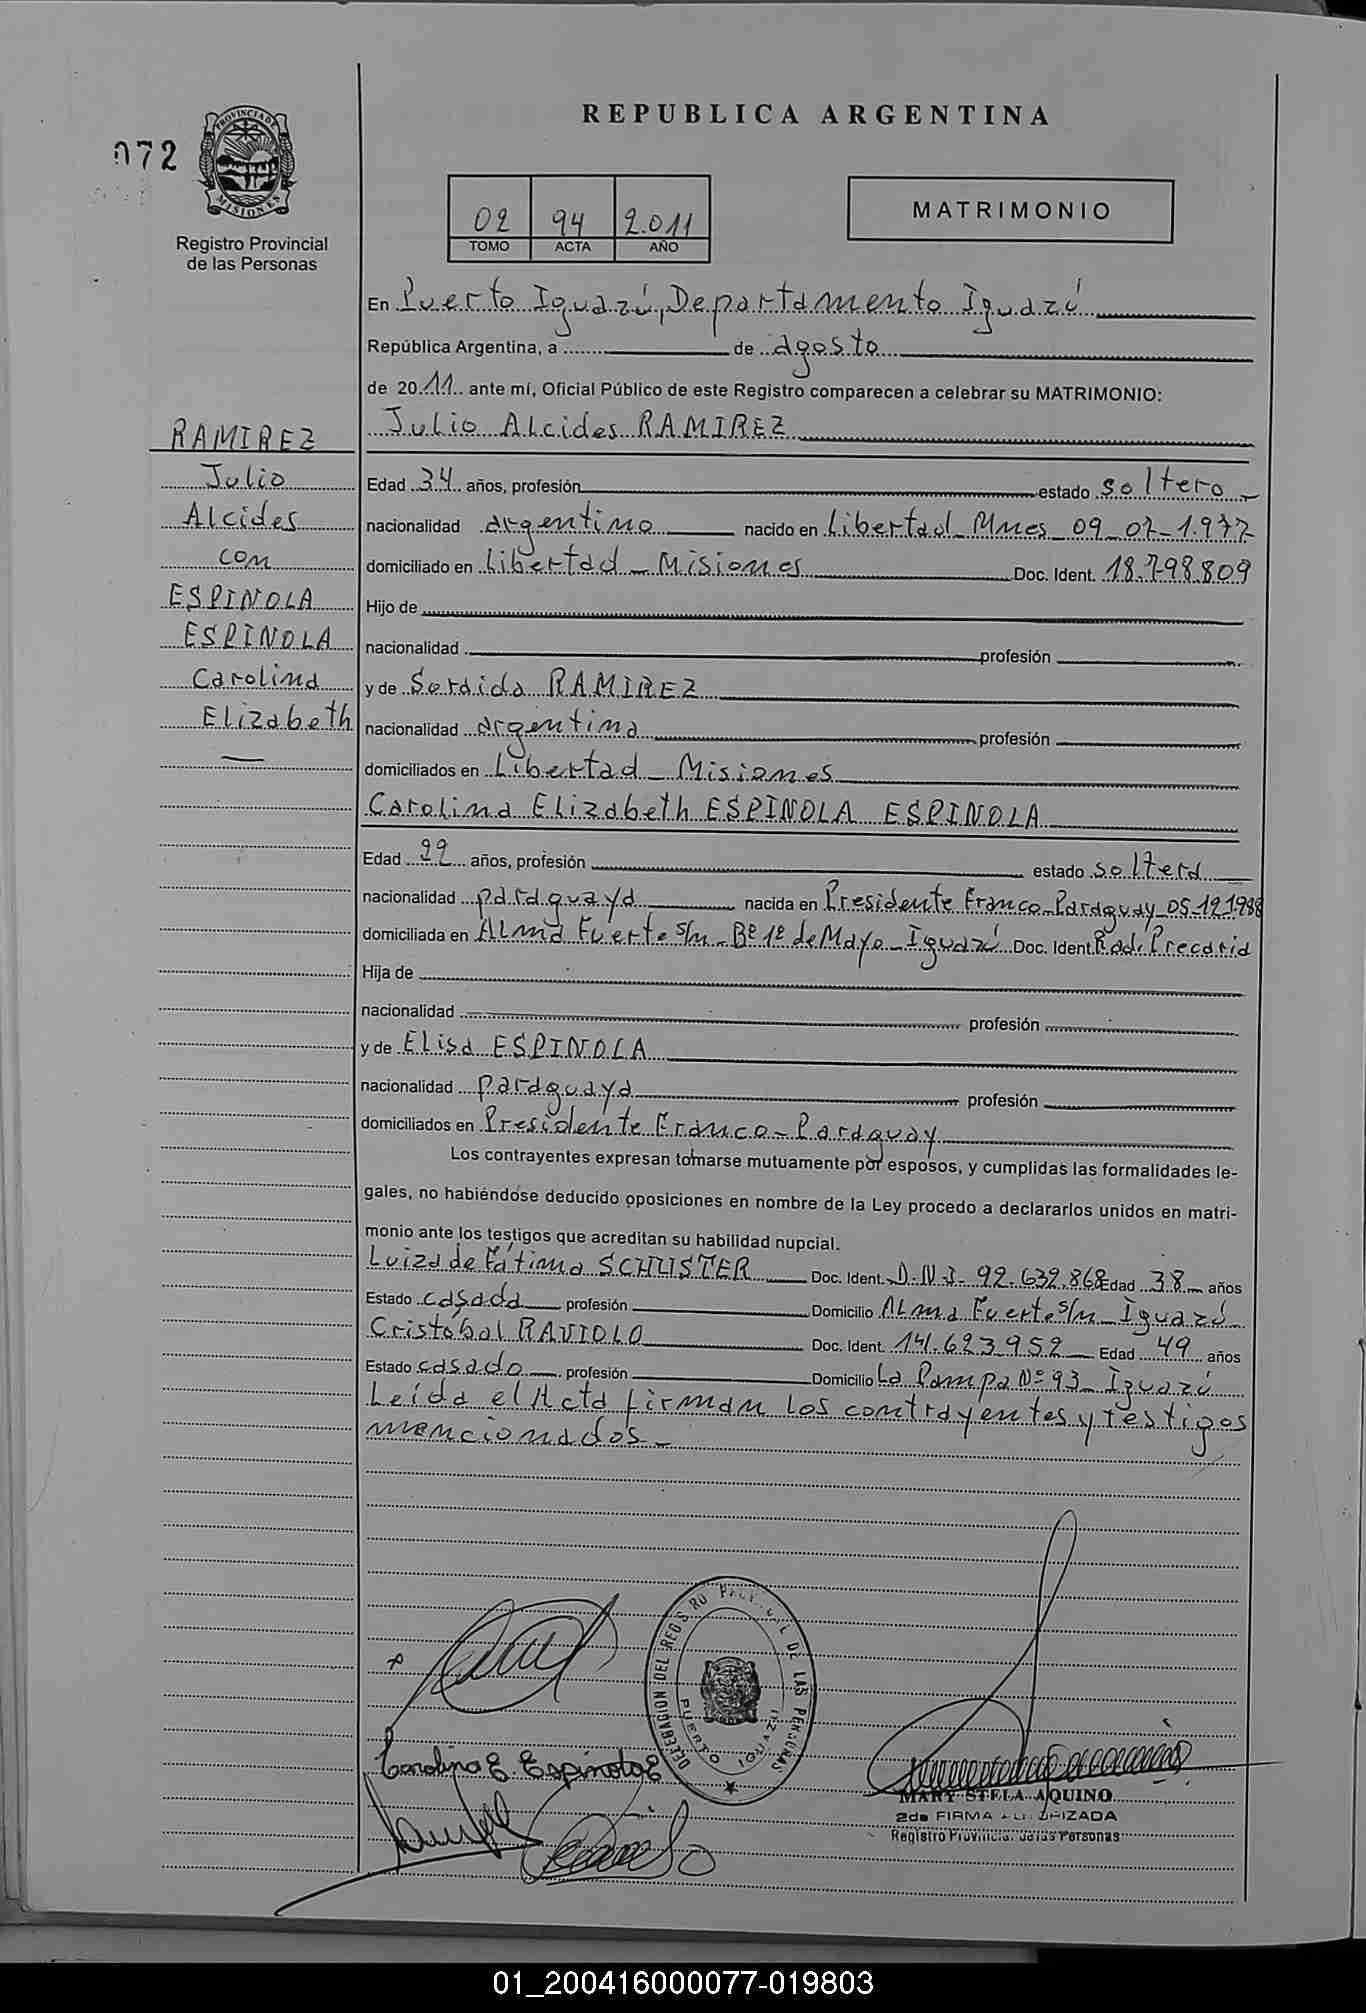 REPUBLICA ARGENTINA
072
PROVINCIA DE
MISIONES
Registro Provincial
de las Personas
02 94 2.011
TOMO ACTA AÑO
MATRIMONIO
En Puerto Iguazú, Departamento Iguazú
República Argentina, a de agosto
de 2011 ante mí, Oficial Público de este Registro comparecen a celebrar su MATRIMONIO:
Julio Alcides RAMIREZ
RAMIREZ
Julio
Alcides
con
ESPINOLA
ESPINOLA
Carolina
Elizabeth
Edad 34 años, profesión estado soltero
nacionalidad argentino nacido en Libertad_Mnes_09_07_1.977
domiciliado en Libertad_Misiones Doc. Ident. 18.798.809
Hijo de
nacionalidad profesión
y de RAMIREZ
nacionalidad argentina profesión
domiciliados en Libertad_Misiones
Carolina Elizabeth ESPINOLA ESPINOLA
Edad 22 años, profesión estado soltera
nacionalidad paraguaya nacida en Presidente Franco_Paraguay_05_12_1988
domiciliada en Alma Fuerte s/n_Bº 1º de Mayo_Iguazú Doc. Ident. Rad. Precaria
Hija de
nacionalidad profesión
y de Elisa ESPINOLA
nacionalidad paraguaya profesión
domiciliados en Presidente Franco_Paraguay
Los contrayentes expresan tomarse mutuamente por esposos, y cumplidas las formalidades le-
gales, no habiéndose deducido oposiciones en nombre de la Ley procedo a declararlos unidos en matri-
monio ante los testigos que acreditan su habilidad nupcial.
Luiza de Fátima SCHUSTER Doc. Ident. D.N.I. 92.632.868 Edad 38 años
Estado casada profesión Domicilio Alma Fuerte s/n_Iguazú
Cristóbal RAVIOLO Doc. Ident. 14.623.952 Edad 49 años
Estado casado profesión Domicilio La Pampa Nº 93_Iguazú
Leída el Acta firman los contrayentes y testigos
mencionados_
DELEGACION DEL REGISTRO PROVINCIAL DE LAS PERSONAS
PUERTO IGUAZU
Carolina E. Espinola E
MARY STELA AQUINO
2da FIRMA AUTORIZADA
Registro Provincial de las Personas
01_200416000077-019803